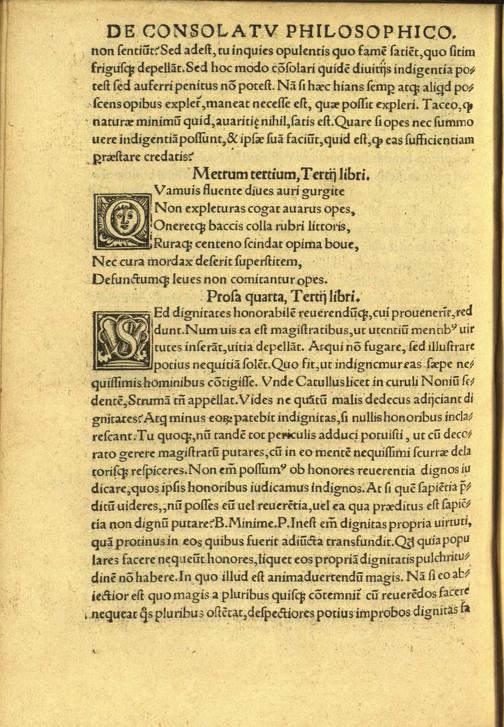 DE CONSOLATV PHILOSOPHICO.
non sentiũt? Sed adest, tu inquies opulentis quo famẽ satiẽt, quo sitim
frigusq; depellãt. Sed hoc modo cõsolari quidẽ diuitijs indigentia po-
test sed auferri penitus nõ potest. Nã si hæc hians semp atq; aliqd po-
scens opibus expleť, maneat necesse est, quæ possit expleri. Taceo, ꝙ
naturæ minimũ quid, auaritię nihil, satis est. Quare si opes nec summo
uere indigentiã possunt, & ipsæ suã faciũt, quid est, ꝙ eas sufficientiam
præstare credatis?
Metrum tertium, Tertij libri.
QVamuis fluente diues auri gurgite
Non expleturas cogat auarus opes,
Oneretq; baccis colla rubri littoris,
Ruraq; centeno scindat opima boue,
Nec cura mordax deserit superstitem,
Defunctumq; leues non comitantur opes.
Prosa quarta, Tertij libri.
SEd dignitates honorabilẽ reuerendũq;, cui prouenerĩt, red
dunt. Num uis ea est magistratibus, ut utentiũ mentibꝰ uir
tutes inserãt, uitia depellãt. Atqui nõ fugare, sed illustrare
potius nequitiã solẽt. Quo fit, ut indignemur eas sæpe ne-
quissimis hominibus cõtigisse. Vnde Catullus licet in curuli Noniũ se-
dentẽ, Strumã tñ appellat. Vides ne quãtũ malis dedecus adijciant di
gnitates? Atq minus eoꝝ patebit indignitas, si nullis honoribus incla-
rescant. Tu quoq;, nũ tandẽ tot periculis adduci potuisti, ut cũ deco-
rato gerere magistratũ putares, cũ in eo mentẽ nequissimi scurræ dela
torisq; respiceres. Non em̃ possumꝰ ob honores reuerentia dignos iu
dicare, quos ipsis honoribus iudicamus indignos. At si quẽ sapiẽtia p̃-
ditũ uideres,, nũ posses eũ uel reuerẽtia, uel ea qua præditus est sapiẽ-
tia non dignũ putare? B. Minime. P. Inest em̃ dignitas propria uirtuti,
quã protinus in eos quibus fuerit adiũcta transfundit. Qđ quia popu
lares facere nequeũt honores, liquet eos propriã dignitatis pulchritu-
dinẽ nõ habere. In quo illud est animaduertendũ magis. Nã si eo ab-
iectior est quo magis a pluribus quisq; cõtemnit̃ cũ reuerẽdos facere
nequeat q̃s pluribus ostẽtat, despectiores potius improbos dignitas fa